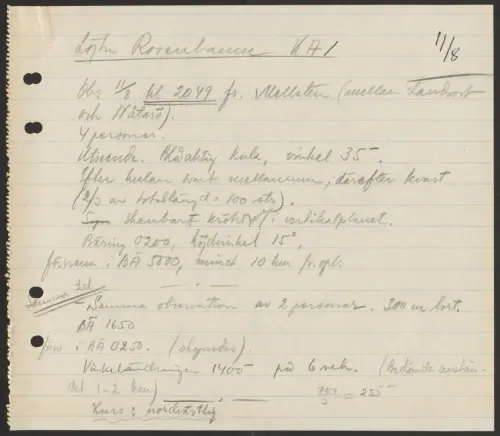 Löjtn Rosenbaum KA1 11/8
Obs 11/8 kl 2049 fr. Mellsten (mellan Landsort
och Nåttarö).
4 personer.
Utseende. Blåaktig kula, vinkel 35".
Efter kulan svart mellanrum, därefter kvast
(2/3 av totallängd = 100 str).
skenbart i vertikalplanet.
Bäring 0200, höjdvinkel 15°,
försvann i BÄ 5000, minst 10 km fr opl.
Samma tid
Samma observation av 2 personer. 300 m bort.
BÄ 1650
försv i BÄ 0250. (skymdes).
Vinkeländringen 1400 på 6 sek. (Bedömde avstån-
det 1-2 km) 700/3 = 235
Kurs: nordvästlig